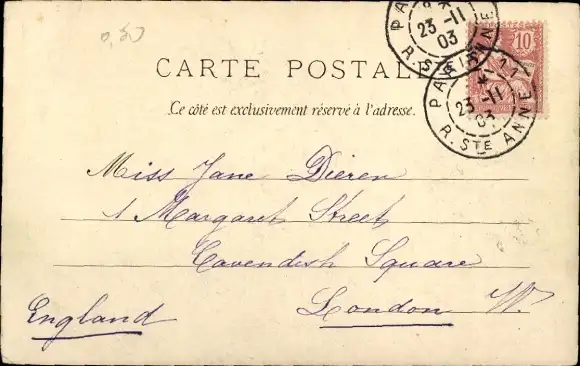 0,50
PARIS 11
23 -11
03
R. STE ANNE
10
PARIS 11
23 -11
03
R. STE ANNE
CARTE POSTALE
Ce côté est exclusivement réservé à l'adresse.
Miss Jane Dieren
1 Margaret Street
Cavendish Square
London W.
England